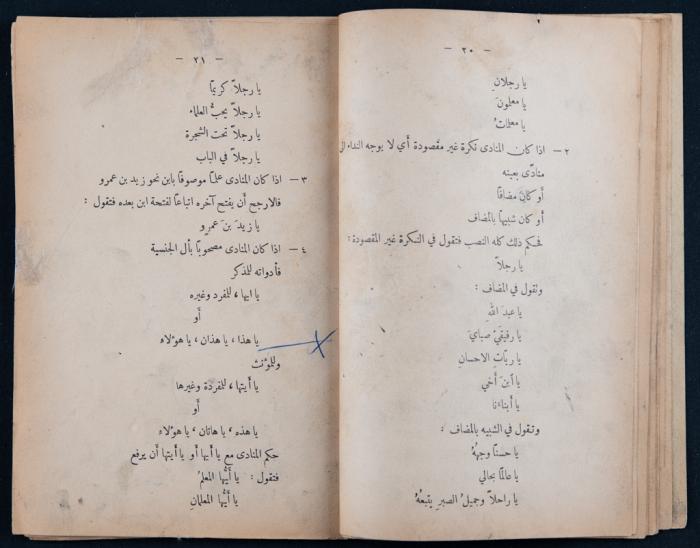 - ٢٠ -
يا رجلانِ
يا معلمونَ
يا معلماتُ
٢ – اذا كان المنادى نكرة غير مقصودة أي لا يوجه النداء الى
منادًى بعينه
أو كان مضافًا
أو كان شبيهًا بالمضاف
فحكم ذلك كله النصب فتقول في النكرة غير المقصودة :
يا رجلاً
وتقول في المضاف :
يا عبدَ اللهِ
يا رفيقَيْ صبايَ
يا رباتِ الاحسانِ
يا ابنَ أخي
يا أبناءَنا
وتقول في الشبيه بالمضاف :
يا حسنًا وجهُهُ
يا عالمًا بحالي
يا راحلاً وجميلُ الصبرِ يتبعُهُ
- ٢١ -
يا رجلاً كريمًا
يا رجلاً يحبُّ العلماء
يا رجلاً تحت الشجرة
يا رجلاً في الباب
٣ – اذا كان المنادى علمًا موصوفًا بابن نحو زيد بن عمرو
فالارجح أن يفتح آخره اتباعًا لفتحة ابن بعده فتقول :
يا زيدَ بنَ عمرٍو
٤ – اذا كان المنادى مصحوبًا بأل الجنسية
فأدواته للمذكر
يا ايها ، للمفرد وغيره
أو
يا هذا ، يا هذان ، يا هؤلاء
وللمؤنث
يا أيتها ، للمفردة وغيرها
أو
يا هذه ، يا هاتان ، يا هؤلاء
حكم المنادى مع يا أيها أو يا أيتها أن يرفع
فتقول : يا أيُّها المعلمُ
يا أيُّها المعلمانِ